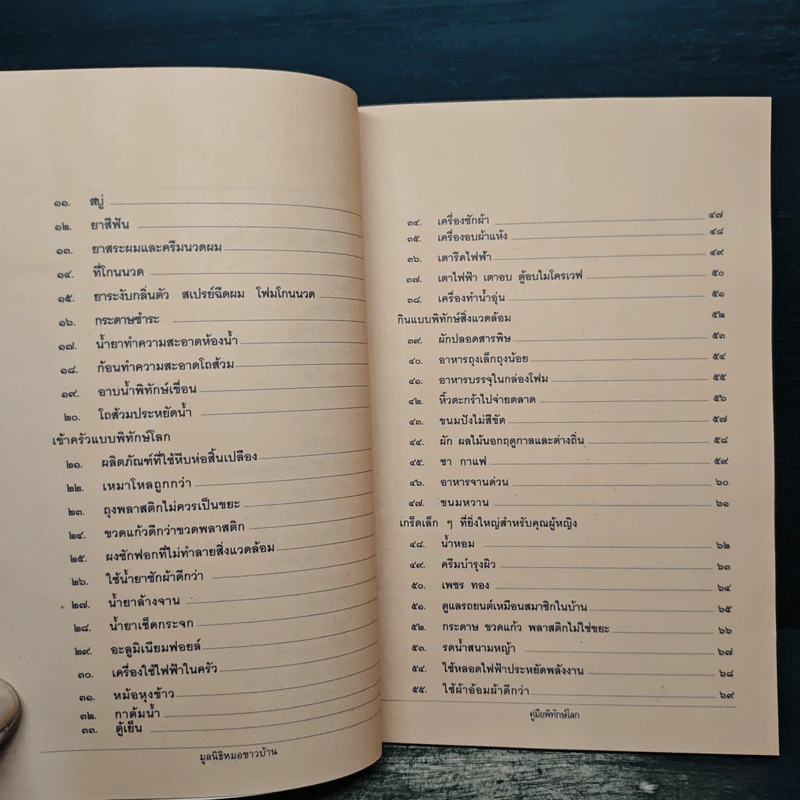 ๑๑. สบู่
๑๒. ยาสีฟัน
๑๓. ยาสระผมและครีมนวดผม
๑๔. ที่โกนนวด
๑๕. ยาระงับกลิ่นตัว สเปรย์ฉีดผม โฟมโกนนวด
๑๖. กระดาษชำระ
๑๗. น้ำยาทำความสะอาดห้องน้ำ
๑๘. ก้อนทำความสะอาดโถส้วม
๑๙. อาบน้ำพิทักษ์เขื่อน
๒๐. โถส้วมประหยัดน้ำ
เข้าครัวแบบพิทักษ์โลก
๒๑. ผลิตภัณฑ์ที่ใช้หีบห่อสิ้นเปลือง
๒๒. เหมาโหลถูกกว่า
๒๓. ถุงพลาสติกไม่ควรเป็นขยะ
๒๔. ขวดแก้วดีกว่าขวดพลาสติก
๒๕. ผงซักฟอกที่ไม่ทำลายสิ่งแวดล้อม
๒๖. ใช้น้ำยาซักผ้าดีกว่า
๒๗. น้ำยาล้างจาน
๒๘. น้ำยาเช็ดกระจก
๒๙. อะลูมิเนียมฟอยล์
๓๐. เครื่องใช้ไฟฟ้าในครัว
๓๑. หม้อหุงข้าว
๓๒. กาต้มน้ำ
๓๓. ตู้เย็น
มูลนิธิหมอชาวบ้าน
๓๔. เครื่องซักผ้า ๔๗
๓๕. เครื่องอบผ้าแห้ง ๔๘
๓๖. เตารีดไฟฟ้า ๔๙
๓๗. เตาไฟฟ้า เตาอบ ตู้อบไมโครเวฟ ๕๐
๓๘. เครื่องทำน้ำอุ่น ๕๑
กินแบบพิทักษ์สิ่งแวดล้อม ๕๒
๓๙. ผักปลอดสารพิษ ๕๓
๔๐. อาหารถุงเล็กถุงน้อย ๕๔
๔๑. อาหารบรรจุในกล่องโฟม ๕๕
๔๒. หิ้วตะกร้าไปจ่ายตลาด ๕๖
๔๓. ขนมปังไม่สีขัด ๕๗
๔๔. ผัก ผลไม้นอกฤดูกาลและต่างถิ่น ๕๘
๔๕. ชา กาแฟ ๕๙
๔๖. อาหารจานด่วน ๖๐
๔๗. ขนมหวาน ๖๑
เกร็ดเล็ก ๆ ที่ยิ่งใหญ่สำหรับคุณผู้หญิง
๔๘. น้ำหอม ๖๒
๔๙. ครีมบำรุงผิว ๖๓
๕๐. เพชร ทอง ๖๔
๕๑. ดูแลรถยนต์เหมือนสมาชิกในบ้าน ๖๕
๕๒. กระดาษ ขวดแก้ว พลาสติกไม่ใช่ขยะ ๖๖
๕๓. รดน้ำสนามหญ้า ๖๗
๕๔. ใช้หลอดไฟฟ้าประหยัดพลังงาน ๖๘
๕๕. ใช้ผ้าอ้อมผ้าดีกว่า ๖๙
คู่มือพิทักษ์โลก